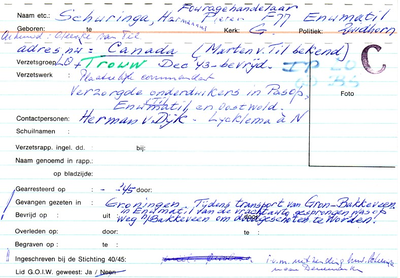 Fouragehandelaar
Naam etc.: Schuringa, Harmannus Pieter F77 Enumatil
Geboren: te Kerk: G. Politiek: Zuidhorn
adres nu = Canada (Marten v. Til bekend)
Verzetsgroep: LO + TROUW Dec 43 - bevrijd.
Verzetswerk : Plaatselijk commandant
Verzorgde onderduikers in Pasop,
Enumatil en Oostwold.
Contactpersonen: Herman v. Dijk - Lycklema à N
Schuilnaam :
C
Foto
Verzetsrapp. ingel. dd. : bij:
Naam genoemd in rapp.:
op bladzijde:
Gearresteerd op : - -45 door:
Gevangen gezeten in : Groningen. Tijdens transport van Gron-Bakkeveen
in Enumatil van de vrachtauto gesprongen
Bevrijd op : uit door:
weg n/ Bakkeveen om doodgeschoten te worden.
Overleden op : door: te
Begraven op : te
Ingeschreven bij de Stichting 40/45:
Lid G.O.I.W. geweest: Ja / Neen